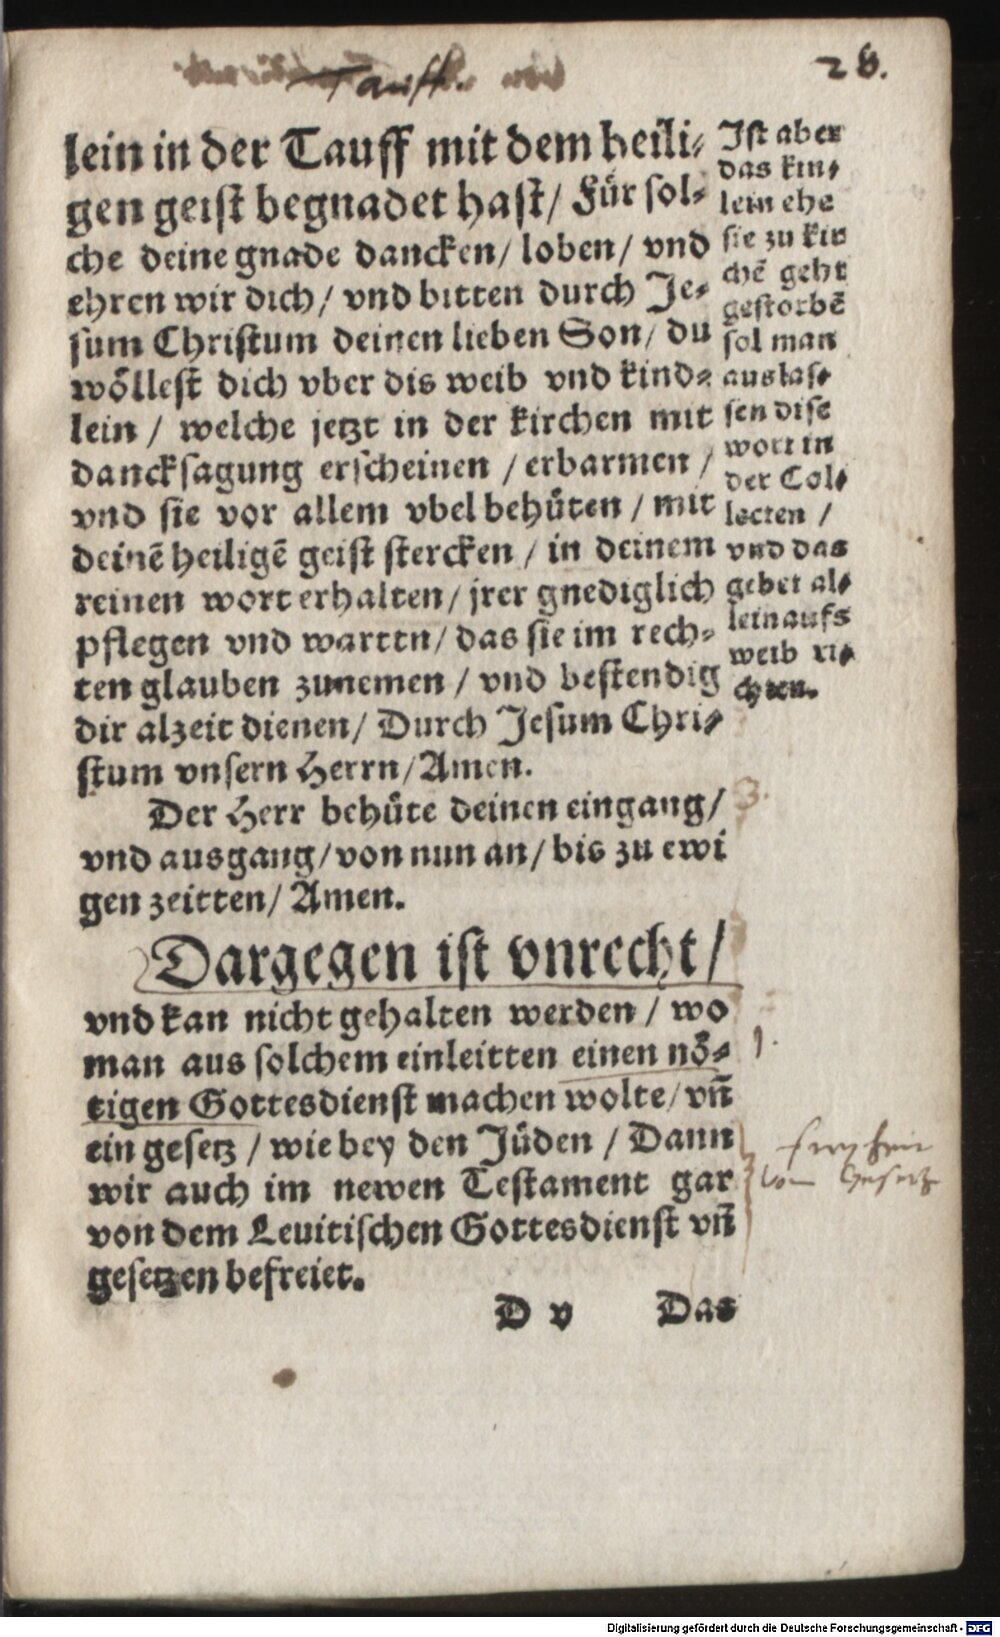 Tauff.
28.
lein in der Tauff mit dem heili⸗
gen geist begnadet hast/ Für sol⸗
che deine gnade dancken/ loben/ vnd
ehren wir dich/ vnd bitten durch Je⸗
sum Christum deinen lieben Son/ du
wöllest dich vber dis weib vnd kind⸗
lein / welche jetzt in der kirchen mit
dancksagung erscheinen / erbarmen /
vnd sie vor allem vbel behüten / mit
deinē heiligē geist stercken / in deinem
reinen wort erhalten/ jrer gnediglich
pflegen vnd warten/ das sie im rech⸗
ten glauben zunemen / vnd bestendig
dir alzeit dienen/ Durch Jesum Chri⸗
stum vnsern Herrn/ Amen.
Ist aber
das kin⸗
lein ehe
sie zu kir
chē geht
gestorbē
sol man
auslas⸗
sen dise
wort in
der Col⸗
lecten /
vnd das
gebet al⸗
lein aufs
weib ri⸗
chten.
Der Herr behüte deinen eingang/
vnd ausgang/ von nun an/ bis zu ewi
gen zeitten/ Amen.
3.
Dargegen ist vnrecht/
vnd kan nicht gehalten werden / wo
man aus solchem einleitten einen nö⸗
tigen Gottesdienst machen wolte/ vñ
ein gesetz / wie bey den Jüden / Dann
wir auch im newen Testament gar
von dem Leuitischen Gottesdienst vñ
gesetzen befreiet.
1.
freyheit
vom Gesetz
D v Das
Digitalisierung gefördert durch die Deutsche Forschungsgemeinschaft - DFG